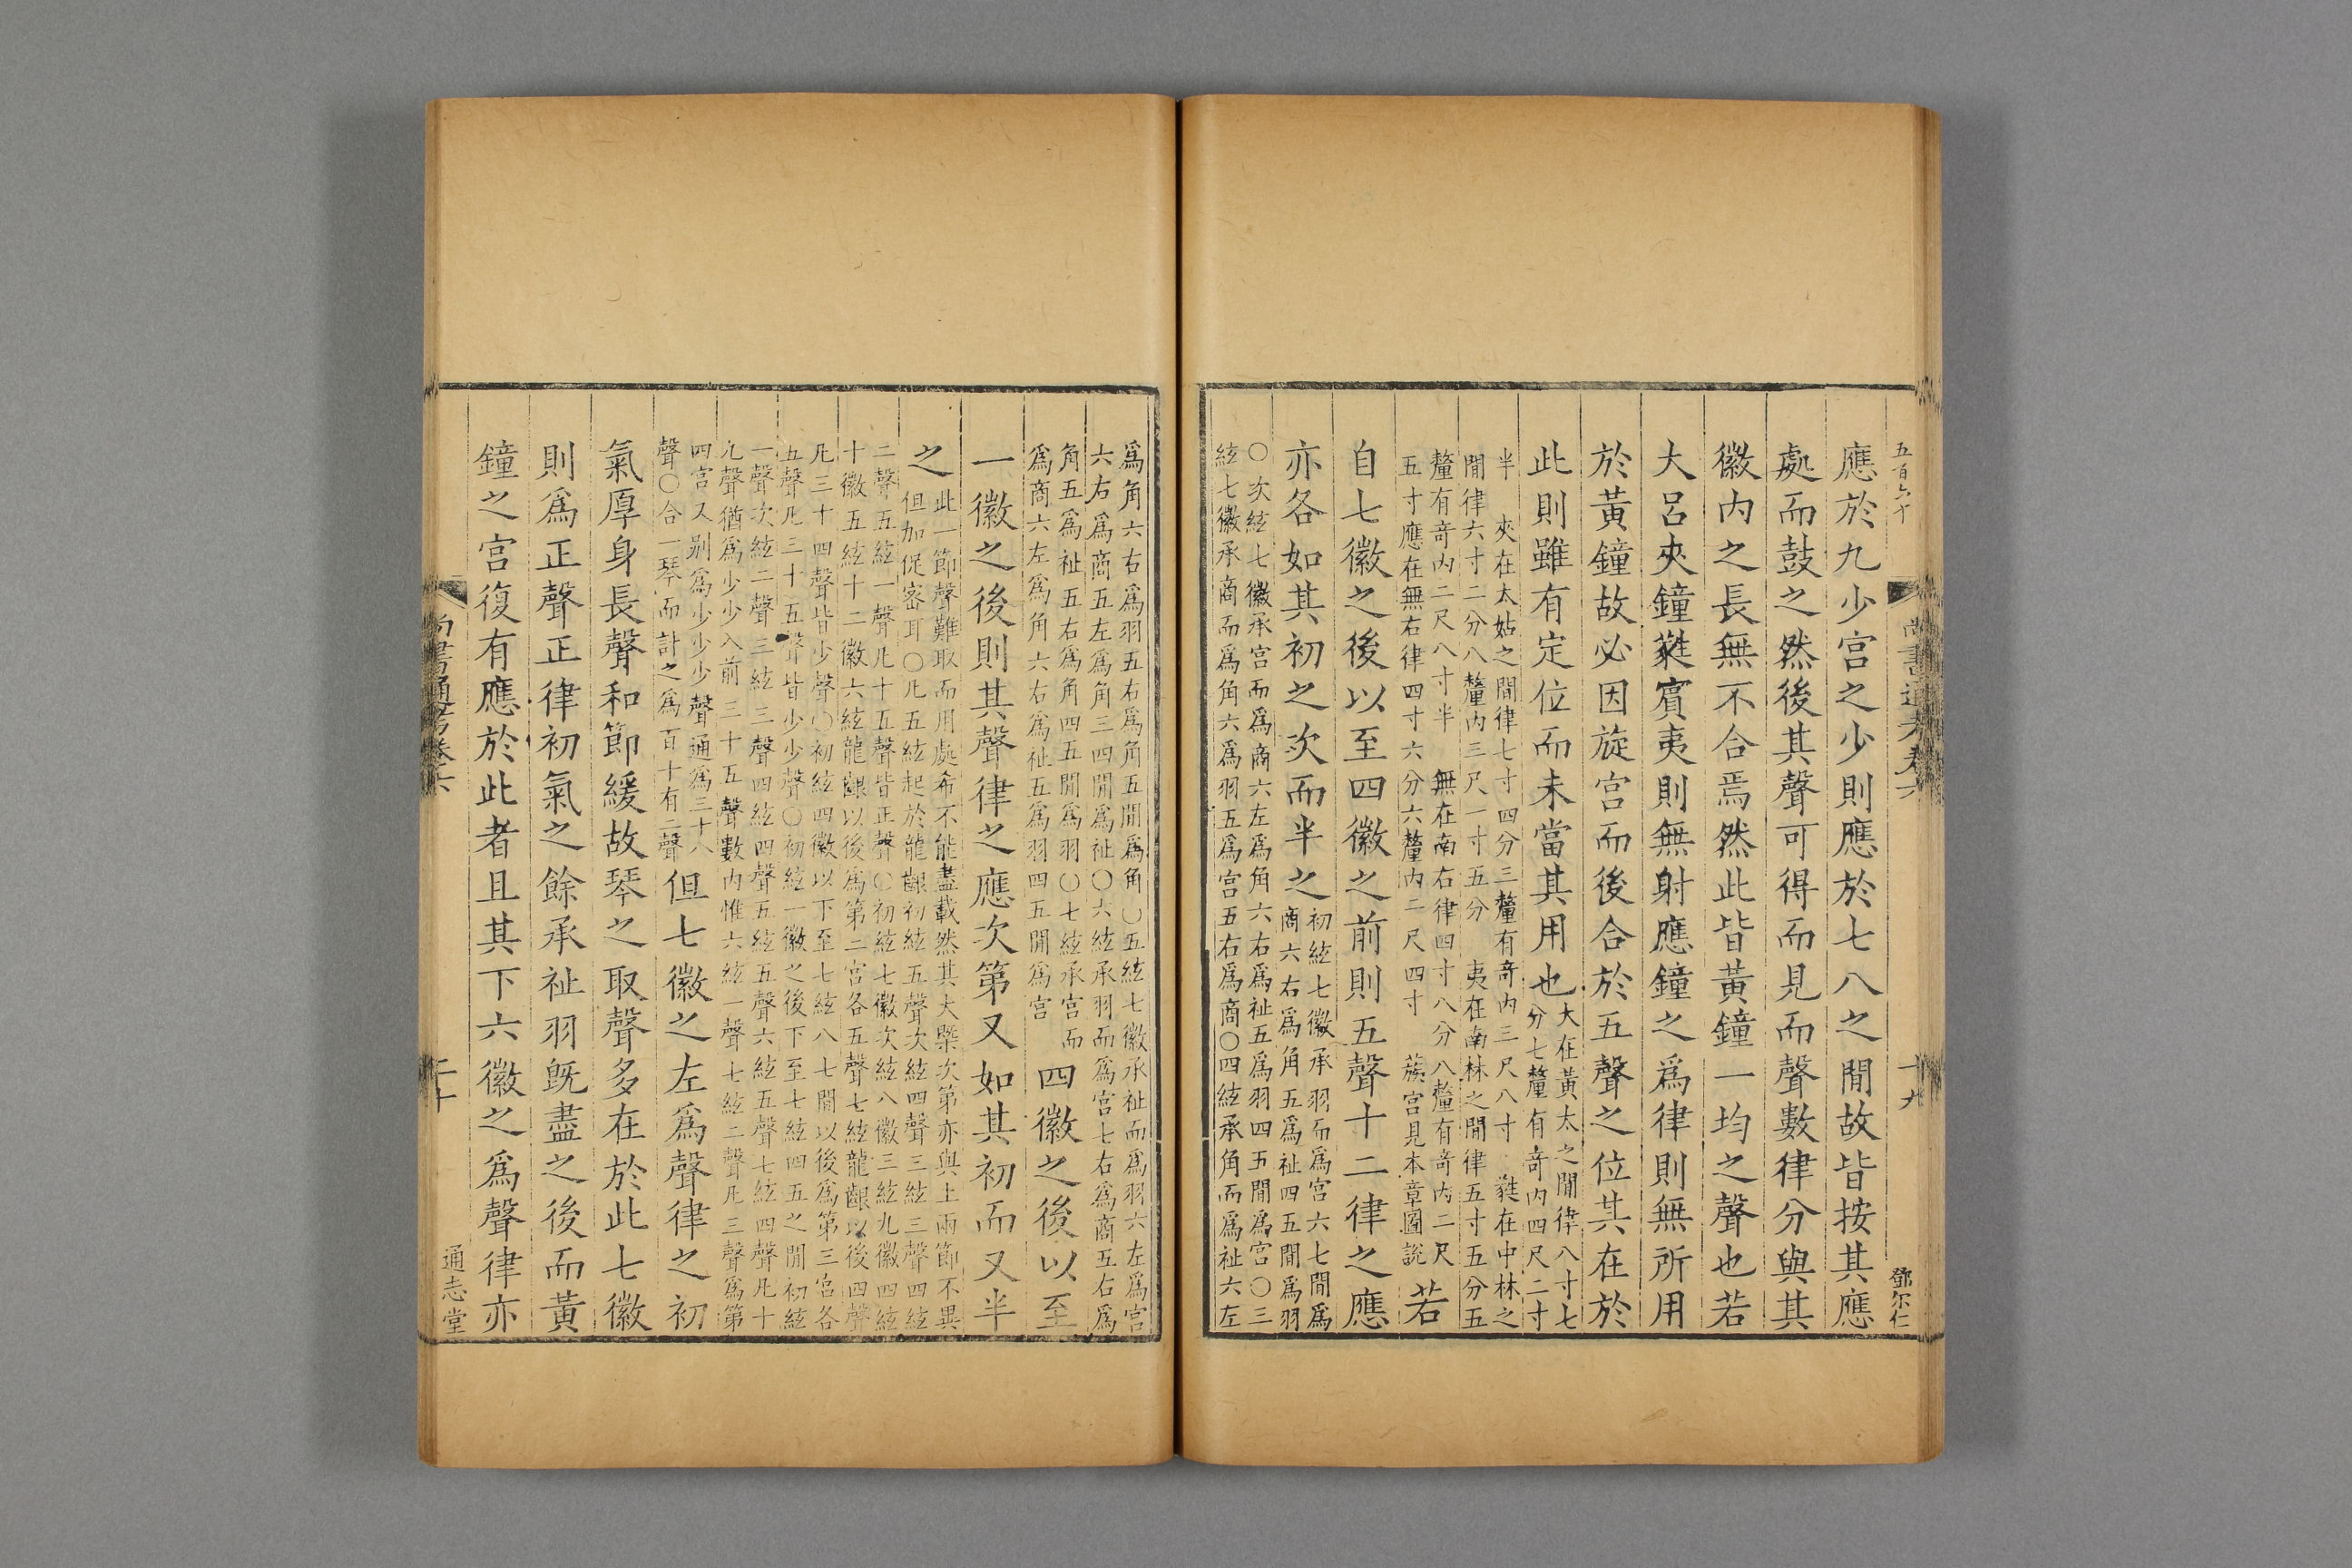 五百六十
尚書通考卷六
十九
鄧尔仁
應於九少宮之少則應於七八之閒故皆按其應
處而鼓之然後其聲可得而見而聲數律分與其
徽內之長無不合焉然此皆黃鐘一均之聲也若
大呂夾鐘蕤賓夷則無射應鐘之爲律則無所用
於黃鐘故必因旋宮而後合於五聲之位其在於
此則雖有定位而未當其用也
大在黃太之閒律八寸七
分七釐有奇內四尺二寸
半　夾在太姑之閒律七寸四分三釐有奇內三尺八寸　蕤在中林之
閒律六寸二分八釐內三尺一寸五分　夷在南林之閒律五寸五分五
釐有奇內二尺八寸半　無在南右律四寸八分八釐有奇內二尺
五寸應在無右律四寸六分六釐內二尺四寸　蔟宮見本章圖說
若
自七徽之後以至四徽之前則五聲十二律之應
亦各如其初之次而半之
初絃七徽承羽而爲宮六七閒爲
商六右爲角五爲祉四五閒爲羽
〇次絃七徽承宮而爲商六左爲角六右爲祉五爲羽四五閒爲宮〇三
絃七徽承商而爲角六爲羽五爲宮五右爲商〇四絃承角而爲祉六左
爲角六右爲羽五右爲角五閒爲角〇五絃七徽承祉而爲羽六左爲宮
六右爲商五左爲角三四閒爲祉〇六絃承羽而爲宮七右爲商五右爲
角五爲祉五右爲角四五閒爲羽〇七絃承宮而
爲商六左爲角六右爲祉五爲羽四五閒爲宮
四徽之後以至
一徽之後則其聲律之應次第又如其初而又半
之
此一節聲難取而用處希不能盡載然其大槩次第亦與上兩節不異
但加促密耳〇凡五絃起於龍齦初絃五聲次絃四聲三絃三聲四絃
二聲五絃一聲凡十五聲皆正聲〇初絃七徽次絃八徽三絃九徽四絃
十徽五絃十二徽六絃龍齦以後爲第二宮各五聲七絃龍齦以後四聲
凡三十四聲皆少聲〇初絃四徽以下至七絃八七閒以後爲第三宮各
五聲凡三十五聲皆少少聲〇初絃一徽之後下至七絃四五之閒初絃
一聲次絃二聲三絃三聲四絃四聲五絃五聲六絃五聲七絃四聲凡十
九聲猶爲少少入前三十五聲數內惟六絃一聲七絃二聲凡三聲爲第
四宮又別爲少少少聲通爲三十八
聲〇合一琴而計之爲百十有二聲
但七徽之左爲聲律之初
氣厚身長聲和節緩故琴之取聲多在於此七徽
則爲正聲正律初氣之餘承祉羽旣盡之後而黃
鐘之宮復有應於此者且其下六徽之爲聲律亦
尚書通考卷六
二十
通志堂